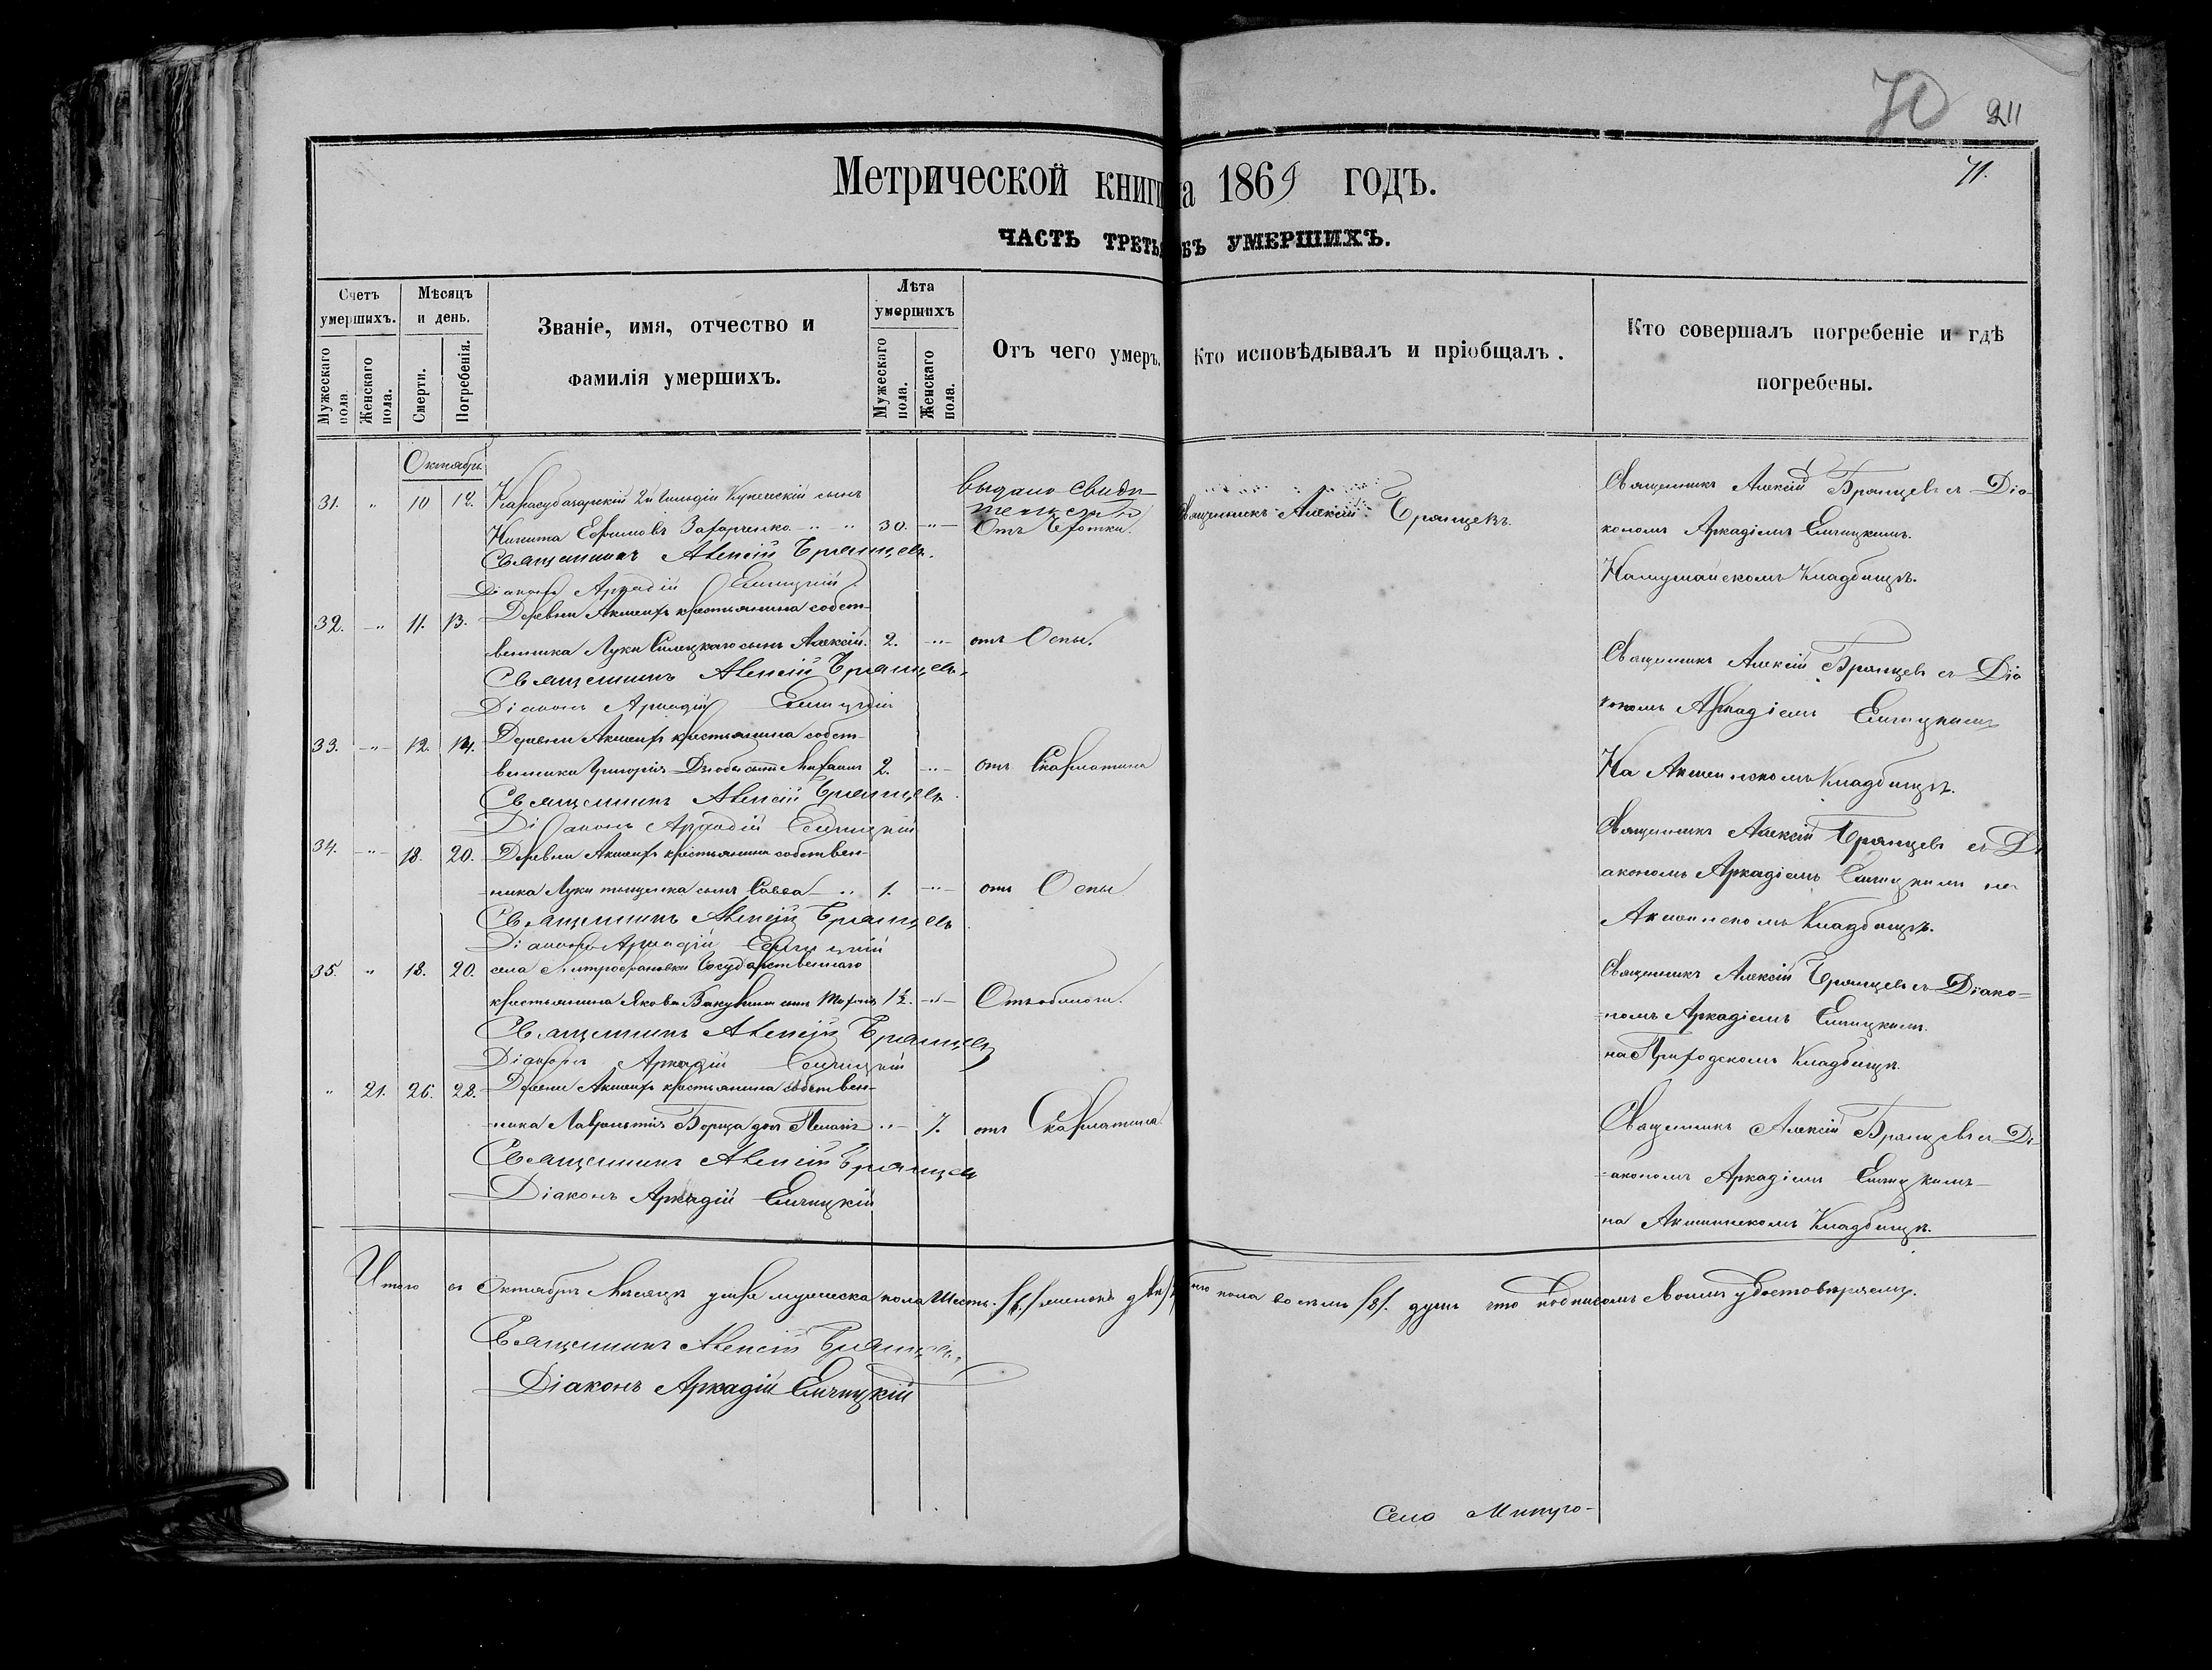 70 211
71.
Метрической книги на 1869 годъ.
ЧАСТЬ ТРЕТЬЯ ОБЪ УМЕРШИХЪ.
Счетъ умершихъ.
Мужескаго пола.
Женскаго пола.
Мѣсяцъ и день.
Смерти.
Погребенія.
Званіе, имя, отчество и
фамилія умершихъ.
Лѣта умершихъ
Мужескаго пола.
Женскаго пола.
Отъ чего умеръ.
Кто исповѣдывалъ и пріобщалъ.
Кто совершалъ погребеніе и гдѣ
погребены.
Октябрь
31. " 10 12. Карасубазарскій 2й Гильдіи Купеческій сынъ
Никита Ефимовъ Захарченко 30.
Священникъ Алексій Брянцевъ.
Діаконъ Аркадій Ельчицкій
выдано свиде-
Отъ Чехотки.
Священникъ Алексій Брянцевъ.
Священникъ Алексій Брянцевъ съ Діа-
кономъ Аркадіемъ Ельчицкимъ.
Кладбищѣ.
32. " 11. 13. Деревни Акшеихъ крестьянина собст-
венника Луки сынъ Алексій. 2. отъ Оспы.
Священникъ Алексій Брянцевъ.
Діаконъ Аркадій Ельчицкій
Священникъ Алексій Брянцевъ съ Діа
кономъ Аркадіемъ Ельчицкимъ
33. " 12. 14. Деревни Акшеихъ крестьянина собст-
венника Григорія Дзюбы сынъ Михаилъ 2. отъ Скарлатина
Священникъ Алексій Брянцевъ.
Діаконъ Аркадій Ельчицкій
На Акшеинскомъ Кладбищѣ.
34. " 18. 20. Деревни Акшеихъ крестьянина собствен-
ника Луки сынъ Савва 1. отъ Оспы
Священникъ Алексій Брянцевъ
Діаконъ Аркадій Ельчицкій
Священникъ Алексій Брянцевъ съ Ді
акономъ Аркадіемъ Ельчицкимъ на
Акшеинскомъ Кладбищѣ.
35. " 18. 20. села Митрофановки Государственнаго
крестьянина Якова сынъ 1½.
Священникъ Алексій Брянцевъ
Діаконъ Аркадій Ельчицкій
Священникъ Алексій Брянцевъ съ Діако=
=номъ Аркадіемъ Ельчицкимъ.
на Кладбищѣ.
" 21. 26. 28. Деревни Акшеихъ крестьянина собствен-
ника Лаврентія Борща дочь Пелагія " 7. отъ Скарлатина
Священникъ Алексій Брянцевъ
Діаконъ Аркадій Ельчицкій
Священникъ Алексій Брянцевъ съ Ді
=акономъ Аркадіемъ Ельчицкимъ
на Акшеинскомъ Кладбищѣ.
Итого въ Октябрѣ Мѣсяцѣ умер мужеска пола Шесть /6/ женска двѣ пола восемь /8/. душъ что подписомъ своимъ удостовѣряемъ.
Священникъ Алексій Брянцевъ.
Діаконъ Аркадій Ельчицкій
Село